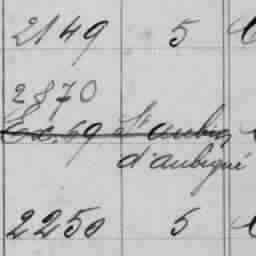 2149 5
2870
Ex. 69 St aubin
d'aubigné
2250 5